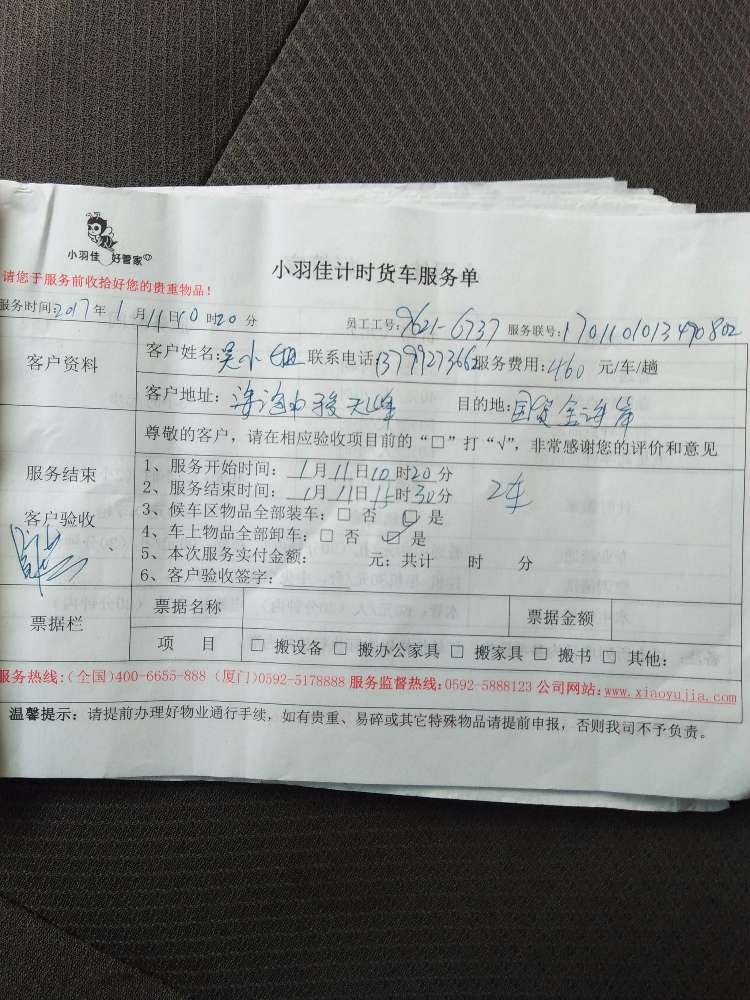 小羽佳 好管家
小羽佳计时货车服务单
请您于服务前收拾好您的贵重物品！
服务时间:2017年1月11日10时20分 员工工号:9621-6737 服务联号:1701101013470802
客户资料
客户姓名:吴小姐 联系电话:13799273662 服务费用:460 元/车/趟
客户地址: 天峰 目的地:国贸金海岸
尊敬的客户，请在相应验收项目前的“□”打“√”，非常感谢您的评价和意见
服务结束
客户验收
1、服务开始时间：1月11日10时20分
2、服务结束时间：1月11日15时30分 2车
3、候车区物品全部装车：□ 否 ☑ 是
4、车上物品全部卸车：□ 否 ☑ 是
5、本次服务实付金额： 元；共计 时 分
6、客户验收签字：
票据栏
票据名称 票据金额
项 目 □ 搬设备 □ 搬办公家具 □ 搬家具 □ 搬书 □ 其他：
服务热线:(全国)400-6655-888 (厦门)0592-5178888 服务监督热线:0592-5888123 公司网站:www.xiaoyujia.com
温馨提示：请提前办理好物业通行手续，如有贵重、易碎或其它特殊物品请提前申报，否则我司不予负责。